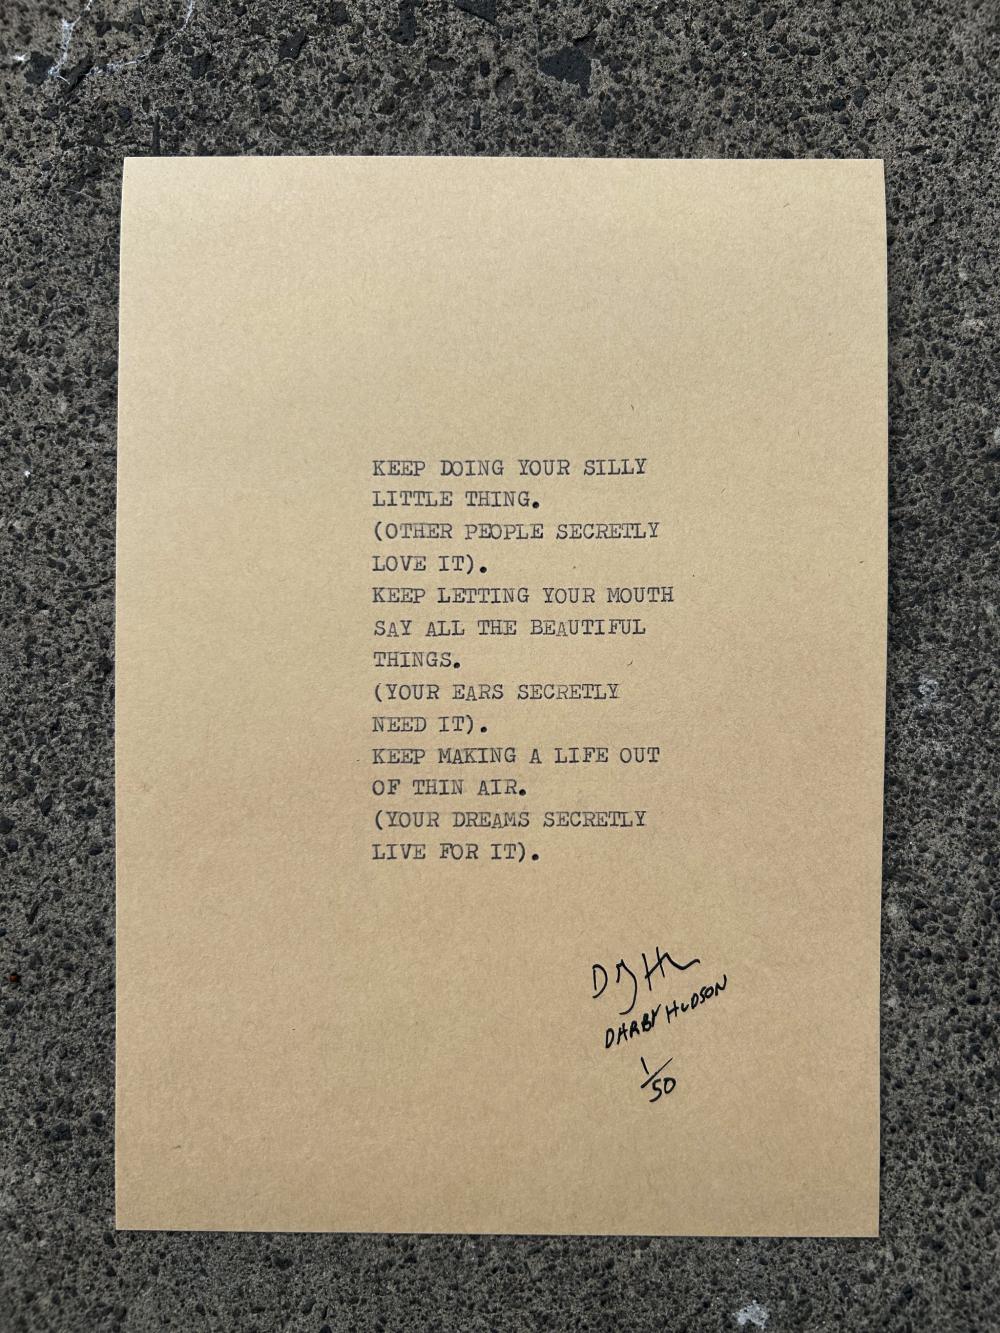 KEEP DOING YOUR SILLY
LITTLE THING.
(OTHER PEOPLE SECRETLY
LOVE IT).
KEEP LETTING YOUR MOUTH
SAY ALL THE BEAUTIFUL
THINGS.
(YOUR EARS SECRETLY
NEED IT).
KEEP MAKING A LIFE OUT
OF THIN AIR.
(YOUR DREAMS SECRETLY
LIVE FOR IT).
DARBY HUDSON
1/50